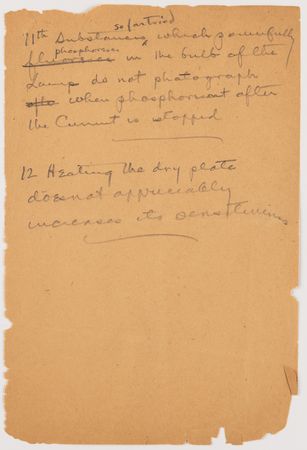 so far tried
11th Substances which powerfully
fluoresces phosphoresces in the bulb of the
Lamp do not photograph
after when phosphorescent after
the Current is stopped
12 Heating the dry plate
does not appreciably
increases its sensitiveness